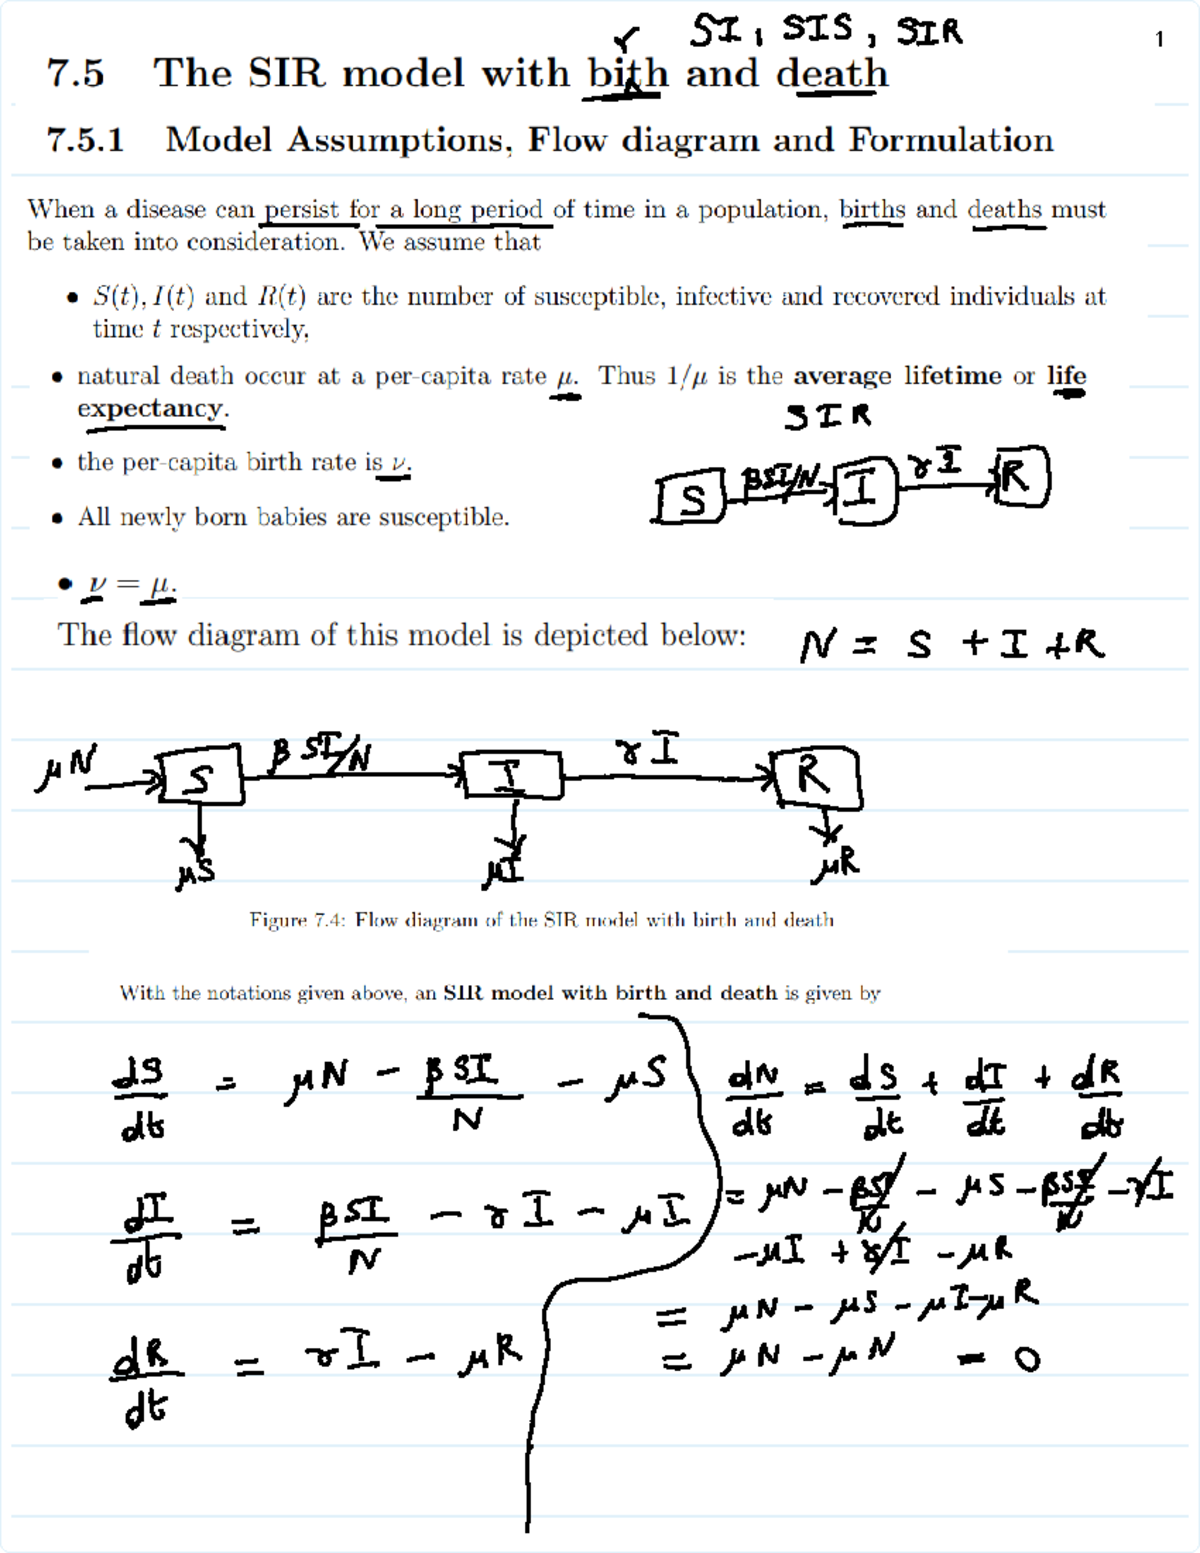 SI, SIS, SIR
1
7.5 The SIR model with bith and death
7.5.1 Model Assumptions, Flow diagram and Formulation
When a disease can persist for a long period of time in a population, births and deaths must
be taken into consideration. We assume that
• S(t), I(t) and R(t) are the number of susceptible, infective and recovered individuals at
time t respectively,
• natural death occur at a per-capita rate μ. Thus 1/μ is the average lifetime or life
expectancy.
SIR
• the per-capita birth rate is ν.
S βSI/N I γI R
• All newly born babies are susceptible.
• ν = μ.
The flow diagram of this model is depicted below:
N = S + I + R
μN S β SI/N I γI R
μS μI μR
Figure 7.4: Flow diagram of the SIR model with birth and death
With the notations given above, an SIR model with birth and death is given by
dS/dt = μN - βSI/N - μS
dI/dt = βSI/N - γI - μI
dR/dt = γI - μR
dN/dt = dS/dt + dI/dt + dR/dt
= μN - βSI/N - μS - βSI/N - γI
- μI + γI - μR
= μN - μS - μI - μR
= μN - μN = 0